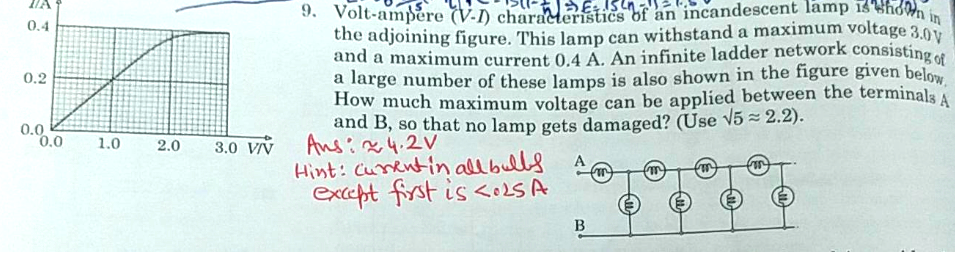 I/A
0.4
0.2
0.0
0.0 1.0 2.0 3.0 V/V
9. Volt-ampere (V-I) characteristics of an incandescent lamp is shown in
the adjoining figure. This lamp can withstand a maximum voltage 3.0 V
and a maximum current 0.4 A. An infinite ladder network consisting of
a large number of these lamps is also shown in the figure given below.
How much maximum voltage can be applied between the terminals A
and B, so that no lamp gets damaged? (Use √5 ≈ 2.2).
Ans: ≈ 4.2V
Hint: Current in all bulbs
except first is <0.25 A
A
B